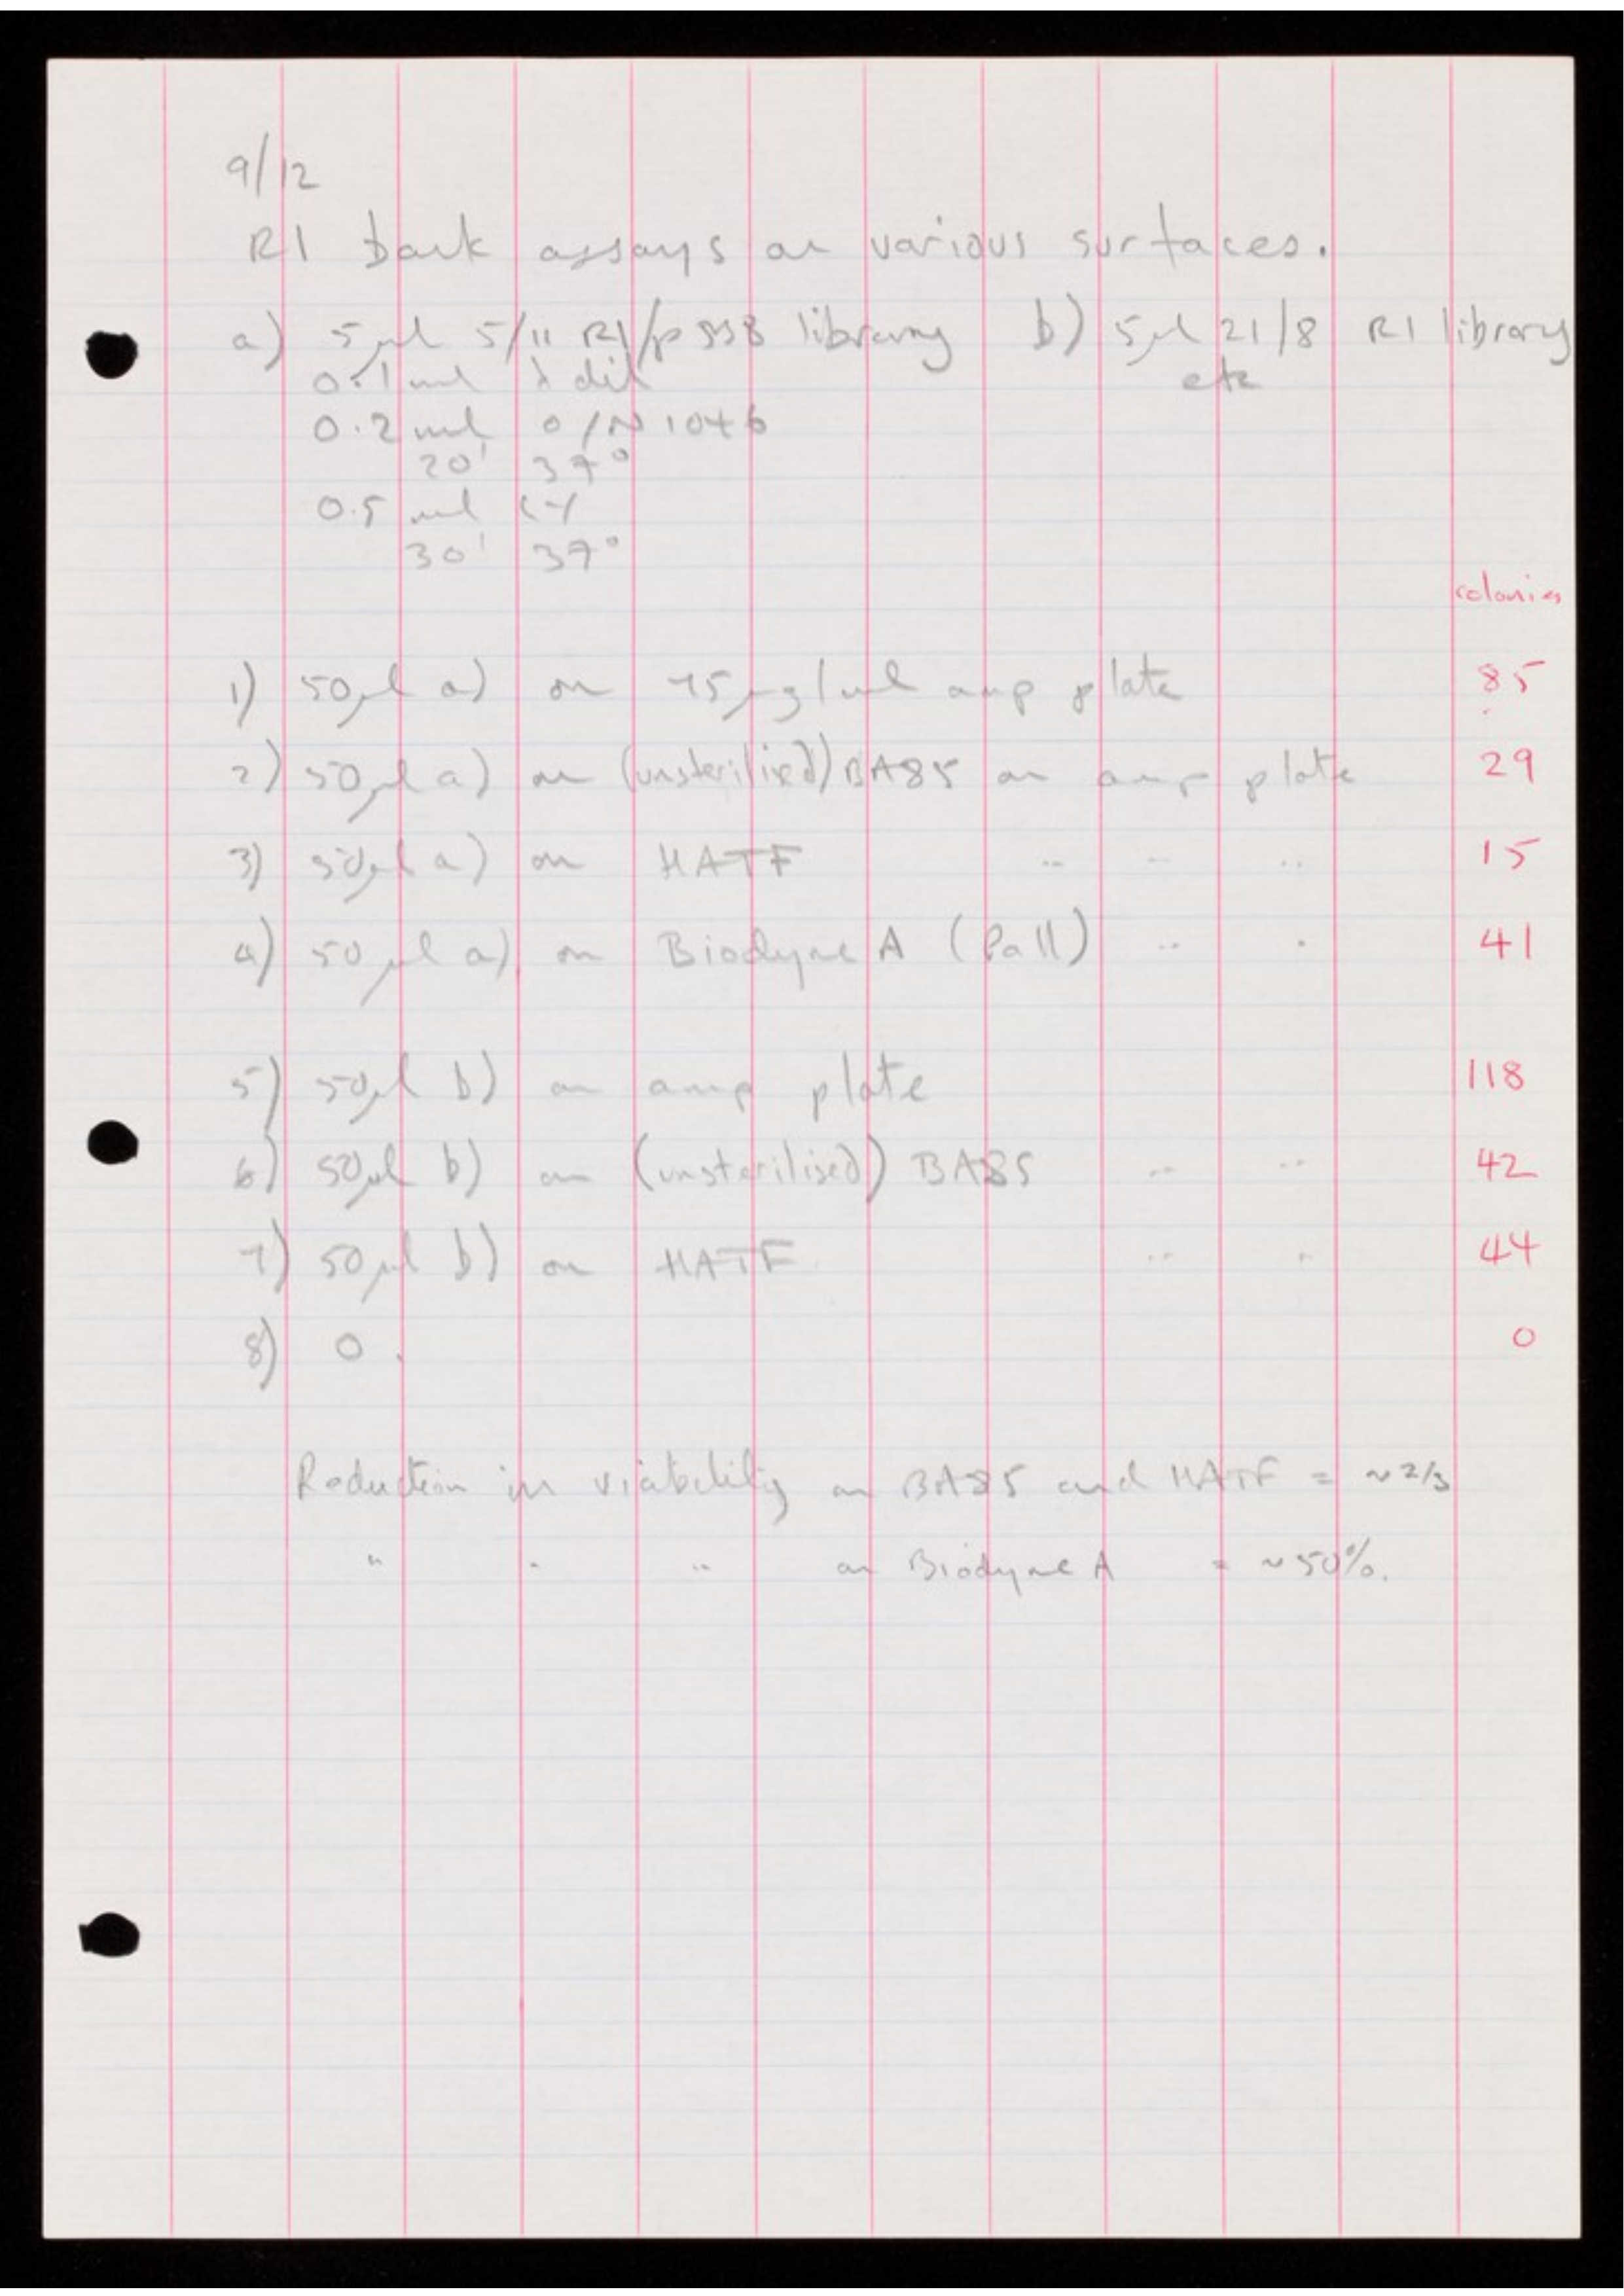 9/12
R1 bank assays on various surfaces.
a) 5µl 5/11 R1/p998 library b) 5µl 21/8 R1 library
0.1 ml λ dil etc
0.2 ml o/N 1046
20' 37°
0.5 ml LY
30' 37°
colonies
1) 50µl a) on 75µg/ml amp plate 85
2) 50µl a) on (unsterilised) BA85 on amp plate 29
3) 50µl a) on HATF .. .. .. 15
4) 50µl a) on Biodyne A (Pall) .. .. 41
5) 50µl b) on amp plate 118
6) 50µl b) on (unsterilised) BA85 .. .. 42
7) 50µl b) on HATF .. .. 44
8) 0. 0
Reduction in viability on BA85 and HATF = ~2/3
" " " on Biodyne A = ~50%.